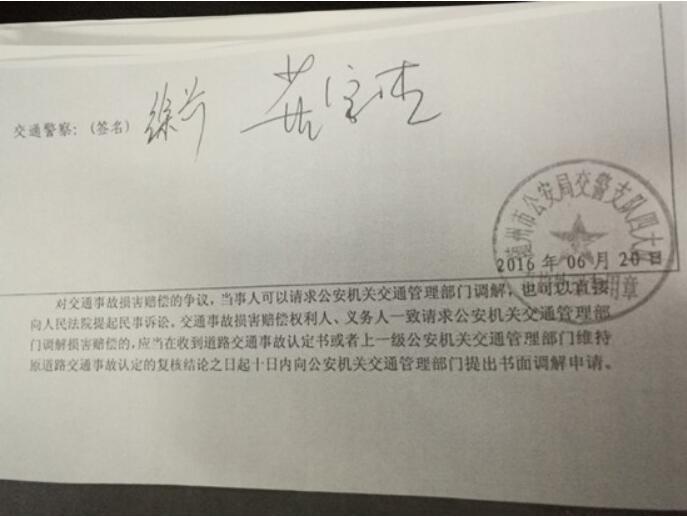 交通警察：(签名)
州市公安局交警支队四大队
2016 年 06 月 20 日
用章
对交通事故损害赔偿的争议，当事人可以请求公安机关交通管理部门调解，也可以直接
向人民法院提起民事诉讼。交通事故损害赔偿权利人、义务人一致请求公安机关交通管理部
门调解损害赔偿的，应当在收到道路交通事故认定书或者上一级公安机关交通管理部门维持
原道路交通事故认定的复核结论之日起十日内向公安机关交通管理部门提出书面调解申请。